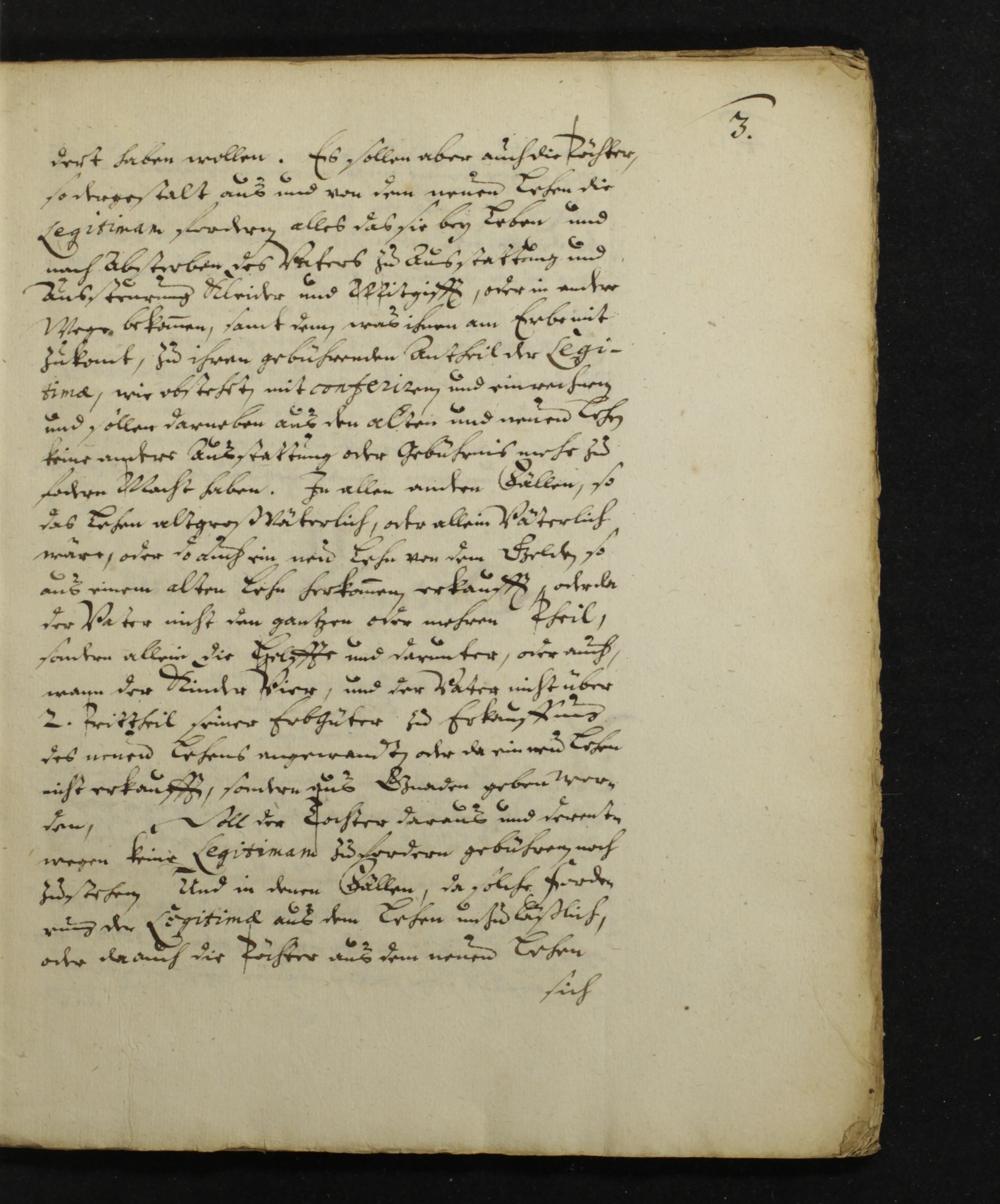 3.
dert haben wollen. Es sollen aber auch die Töchter,
so dergestalt aus und von dem neuen Lehen die
Legitimam fordern alles das sie bey Leben und
nach Absterben des Vaters zu Ausstattung und
Aussteurung Kleider und Mitgifft, oder in andere
Wege bekom̄en, samt dem, was ihnen am Erbe mit
zukomt, zu ihren gebührenden Antheil der Legi-
timæ, wie obstehet, mit conferiren und einwerffen
und sollen darneben aus den alten und neuen Lehen
keine andere Ausstattung oder Gebührnis mehr zu
fodern Macht haben. In allen andern Fällen, so
das Lehen altgroßVäterlich, oder allein Väterlich
wäre, oder do auch ein neu Lehn von dem Gelde, so
aus einem alten Lehn herkom̄en, erkaufft, oder da
der Vater nicht den gantzen oder mehren Theil,
sondern allein die Helffte und darunter, oder auch,
wann der Kinder Vier, und der Vater nicht über
2. Drittheil seiner Erbgüter zu Erkauffung
des neuen Lehens angewandt, oder da ein neu Lehen
nicht erkaufft, sondern aus Gnaden geben wor-
den, Soll der Tochter daraus und derent-
wegen keine Legitimam zu fordern gebühren noch
zustehen Und in denen Fällen, da solche Forde-
rung der Legitimæ aus dem Lehen unzuläßlich,
oder da auch die Töchter aus dem neuen Lehen
sich